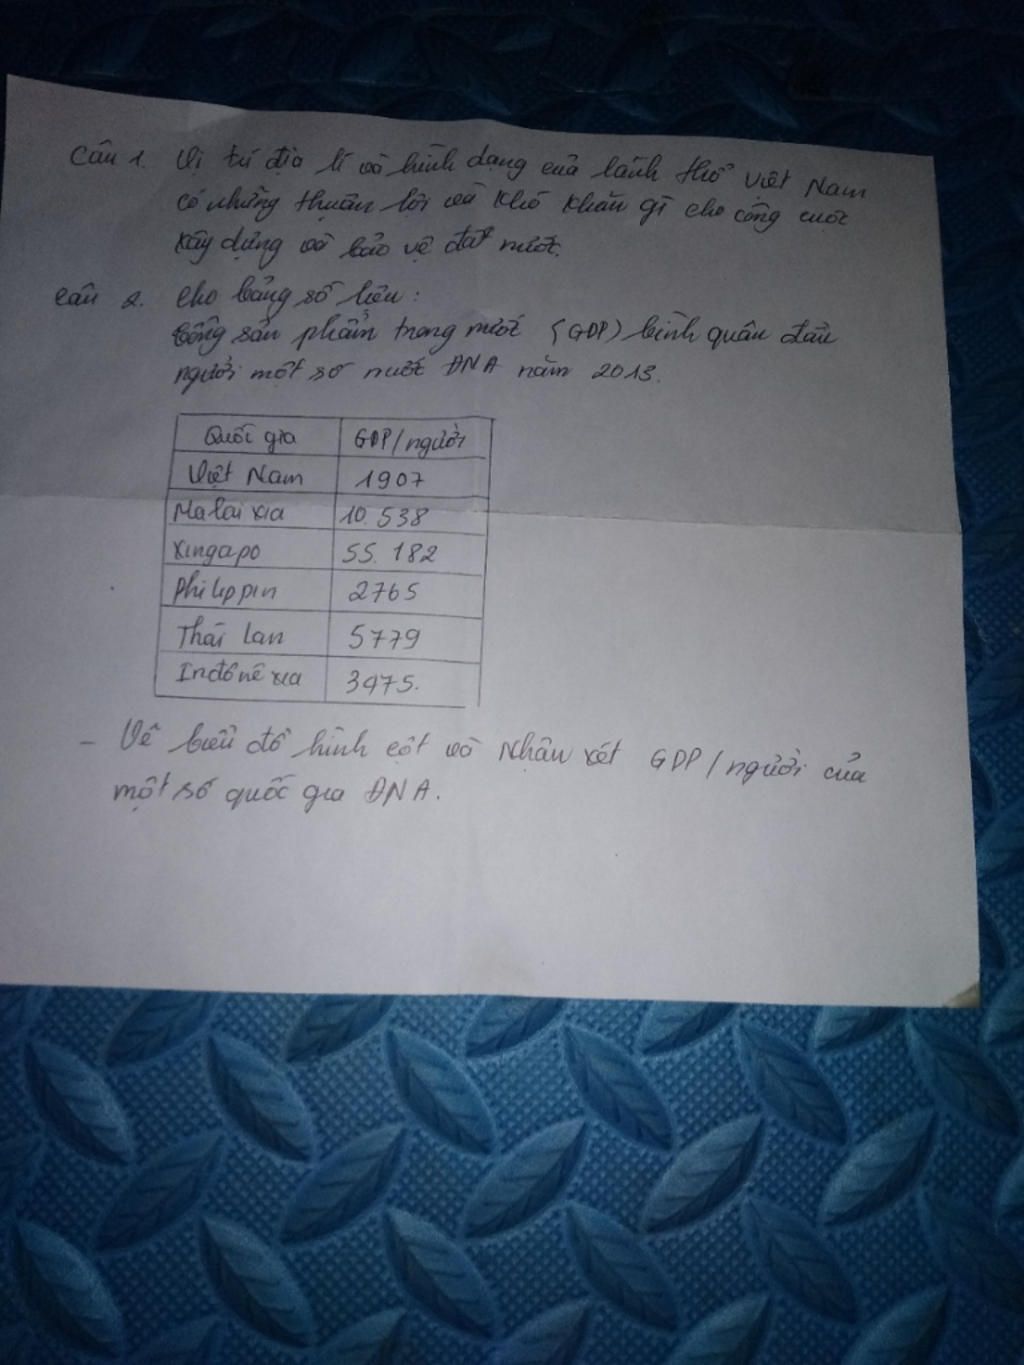 Câu 1. Vị trí địa lí và hình dạng của lãnh thổ Việt Nam
có những thuận lợi và khó khăn gì cho công cuộc
xây dựng và bảo vệ đất nước.
Câu 2. Cho bảng số liệu:
Tổng sản phẩm trong nước (GDP) bình quân đầu
người một số nước ĐNA năm 2013.
Quốc gia GDP/người
Việt Nam 1907
Malaixia 10.538
Xingapo 55.182
Philippin 2765
Thái Lan 5779
Inđônêxia 3475.
- Vẽ biểu đồ hình cột và nhận xét GDP/người của
một số quốc gia ĐNA.